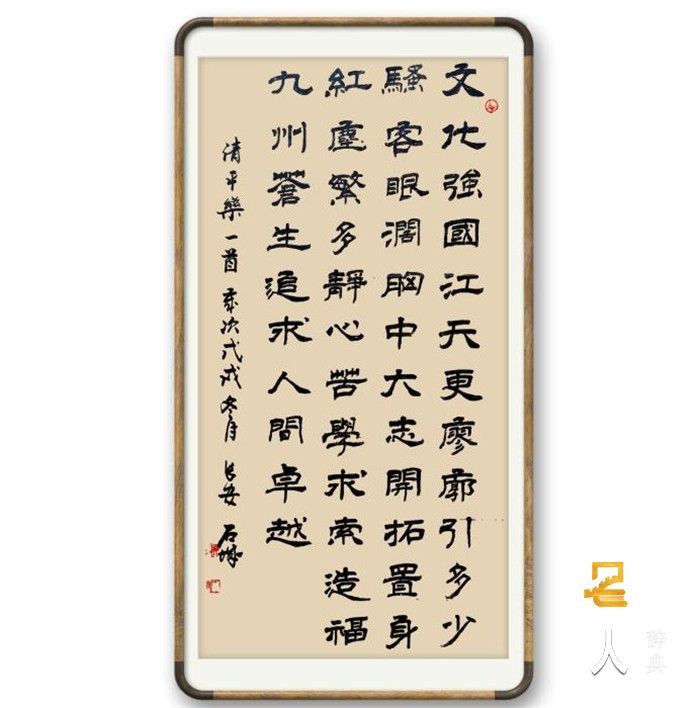 文化強國江天更廖廓引多少
騷客眼濶胸中大志開拓置身
紅塵繁多靜心苦學求索造福
九州蒼生追求人間卓越
清平樂一首 歲次戊戌冬月 長安 石城
名人
辞典